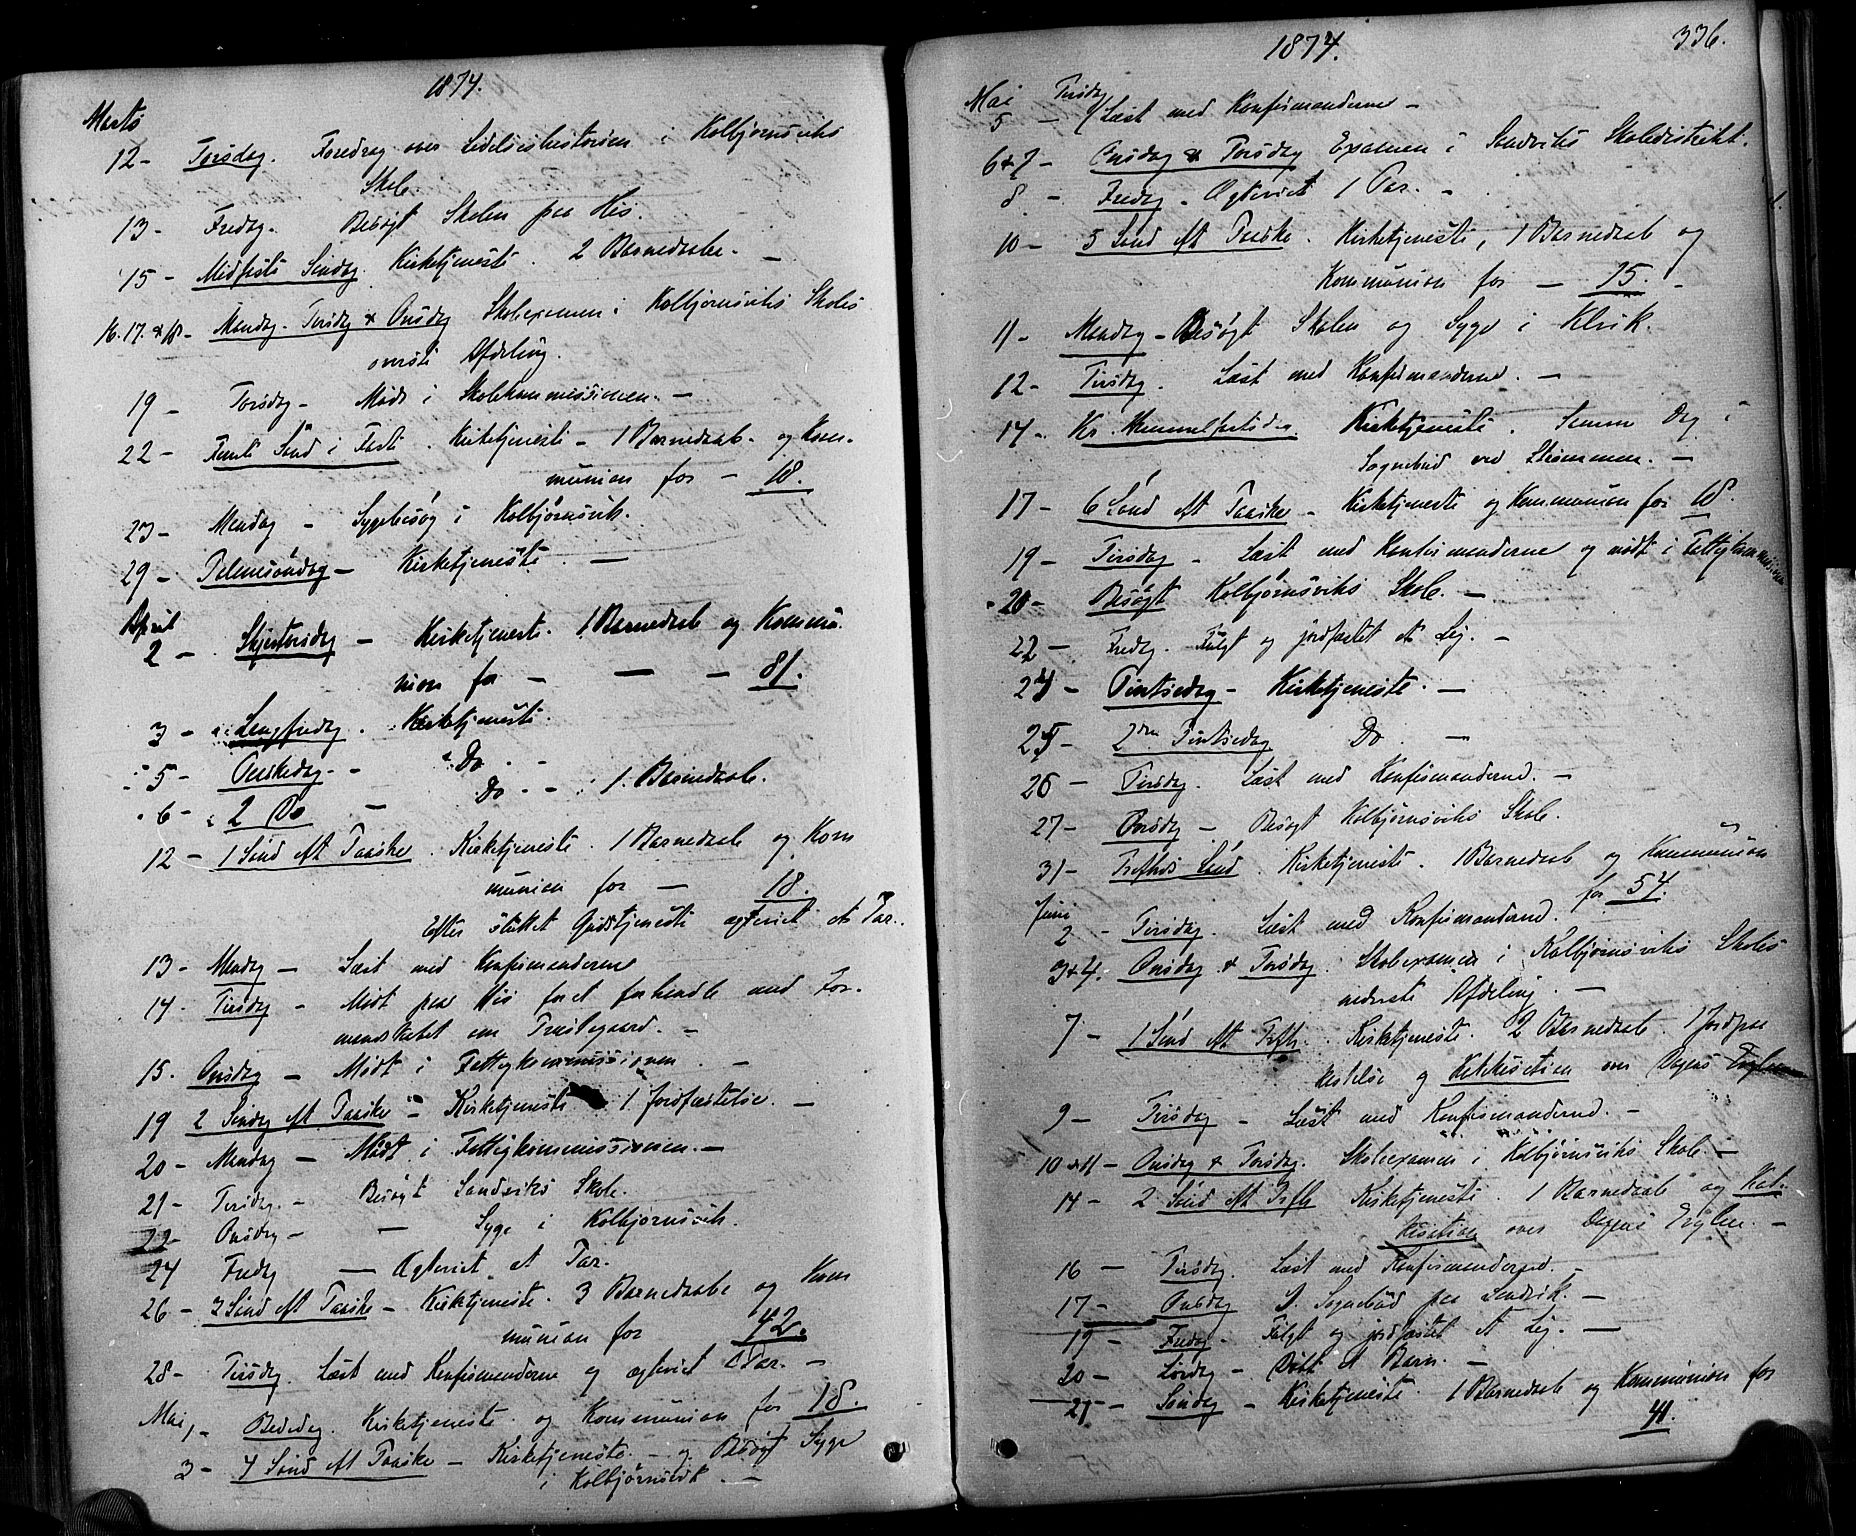 1874.
Marts
12 - Torsdag. Foredrag over Lidelseshistorien i Kolbjørnsviks
Skole.
13 - Fredag. Besøgt Skolen paa His.
15 - Midfaste Søndag. Kirketjeneste. 2 Barnedaabe. -
16. 17. & 18 - Mandag. Tirsdag & Onsdag Skoleexamen i Kolbjørnsviks Skoles
øverste Afdeling.
19 - Torsdag - Møde i Skolekommissionen. -
22 - Femte Sønd i Faste. Kirketjeneste - 1 Barnedaab - og Kom-
munion for - 18.
23 - Mandag - Sygebesøg i Kolbjørnsvik.
29 - Palmesøndag - Kirketjeneste. -
April
2 - Skjertorsdag - Kirketjeneste. 1 Barnedaab og Kommu-
nion for - - - 81.
3 - Langfredag. Kirketjeneste.
5 - Paaskedag - Do. -
6 - 2 Do - Do - - 1. Barnedaab.
12 - 1 Sønd eft Paaske. Kirketjeneste. 1 Barnedaab og Kom
munion for - 18.
Efter sluttet Gudstjeneste ægteviet et Par.
13 - Mandag - Læst med Konfirmanderne
14 - Tirsdag - Mødt paa His for at forhandle med For-
mandskabet om Præstegaard. -
15. Onsdag - Mødt i Fattigkommissionen. -
19 2 Søndag eft Paaske - Kirketjeneste 1 Jordfæstelse. -
20 - Mandag - Mødt i Fattigkommissionen. -
21 - Tirsdag. - Besøgt Sandviks Skole.
22 - Onsdag - - Syge i Kolbjørnsvik.
24 Fredag - Ægteviet et Par.
26 - 3 Sønd eft Paaske - Kirketjeneste. 3 Barnedaabe og Kom
munion for 42.
28 - Tirsdag. Læst med Konfirmanderne og ægteviet 1 Par. -
Mai 1 - Bededag. Kirketjeneste og Kommunion for 18.
3 - 4 Sønd eft Paaske - Kirketjeneste. - og Besøgt Syge
i Kolbjørnsvik. -
1874. 336.
Mai Tirsdag
5 - Læst med Konfirmanderne -
6 & 7 - Onsdag & Torsdag Examen i Sandviks Skoledistrikt.
8 - Fredag - Ægteviet 1 Par. -
10 - 5 Sønd eft Paaske. Kirketjeneste, 1 Barnedaab og
Kommunion for - 15. -
11 - Mandag - Besøgt Skolen og Syge i Klevik.
12 - Tirsdag. Læst med Konfirmanderne. -
14 - Kr. Himmelfartsdag Kirketjeneste. Samme Dag i
Sognebud ved Strømmen. -
17 - 6 Sønd eft Paaske - Kirketjeneste og Kommunion for 18.
19 - Tirsdag - Læst med Konfirmanderne og mødt i Fattigkommissionen
20 - Besøgt Kolbjørnsviks Skole. -
22 - Fredag. Fulgt og jordfæstet et Lig. -
24 - Pintsedag - Kirketjeneste. -
25 - 2den Pintsedag Do. -
26 - Tirsdag. Læst med Konfirmanderne. -
27 - Onsdag - Besøgt Kolbjørnsviks Skole.
31 - Trefheds Sønd. Kirketjeneste. 1 Barnedaab og Kommunion
for 54.
Juni
2 - Tirsdag. Læst med Konfirmanderne.
3 & 4. Onsdag & Torsdag. Skoleexamen i Kolbjørnsviks Skoles
nederste Afdeling. -
7 - 1 Sønd eft Trefh. Kirketjeneste. 2 Barnedaab. 1 Jordpaa
kastelse og Katekisation over Dagens
9 - Tirsdag - Læst med Konfirmanderne. -
10 & 11 - Onsdag & Torsdag. Skoleexamen i Kolbjørnsviks Skole. -
14 - 2 Sønd eft Trefh Kirketjeneste. 1 Barnedaab og Kat-
kisation over Dagens Evglm. -
16 - Tirsdag. Læst med Konfirmanderne. -
17 - Onsdag I Sognebud paa Sandvik. -
19 - Fredag - Fulgt og jordfæstet et Lig. -
20 - Lørdag - Døbt et Barn. -
21 - Søndag - Kirketjeneste. 1 Barnedaab og Kommunion for
41.